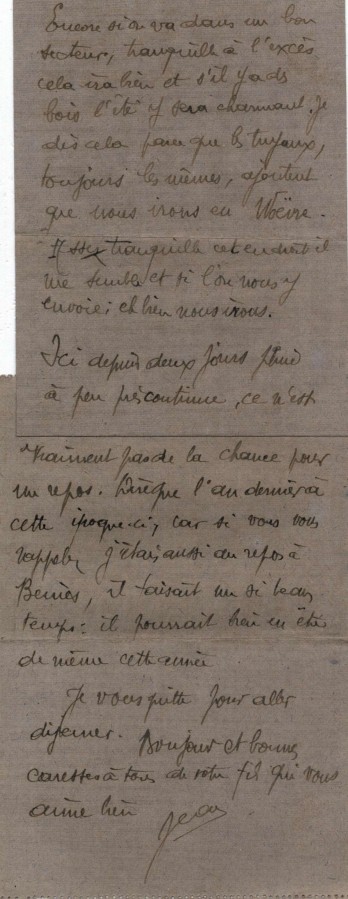 Encore si on va dans un bon
secteur, tranquille à l'excès
cela ira bien et s'il y a ds
bois l'été y sera charmant. Je
dis cela parce que les tuyaux,
toujours les mêmes, ajoutent
que nous irons en Woëvre.
Assez tranquille cet endroit il
me semble et si l'on nous y
envoie; eh bien nous irons.
Ici depuis deux jours pluie
à peu près continue, ce n'est
vraiment pas de la chance pour
un repos. Dire que l'an dernier à
cette époque-ci, car si vous vous
rappelez j'étais aussi au repos à
il faisait un si beau
temps: il pourrait bien en être
de même cette année
Je vous quitte pour aller
déjeuner. Bonjour et bonnes
caresses à tous de votre fils qui vous
aime bien Jean